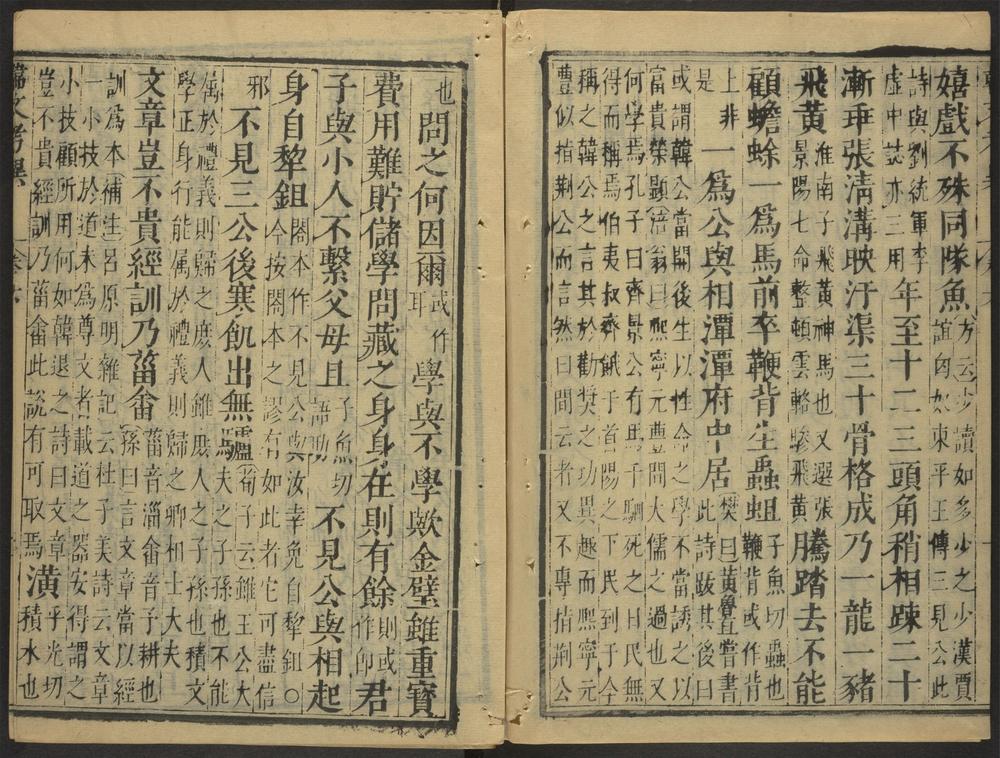 嬉戲不殊同隊魚方云少讀如多少之少漢賈
誼匈奴東平王傳三見公此
詩與劉統軍李
虛中誌亦三用年至十二三頭角稍相疎二十
漸乖張淸溝映汙渠三十骨格成乃一龍一豬
飛黃淮南子飛黃神馬也又選張
景陽七命整頓雲輅驂飛黃騰踏去不能
顧蟾蜍一爲馬前卒鞭背生蟲蛆子魚切蟲也
鞭背或作背
上非
是一爲公與相潭潭府中居樊曰黃魯直嘗書
此詩跋其後曰
或謂韓公當開後生以性命之學不當誘之以
富貴榮顯涪翁曰熙寧元豊間大儒之過也又
何學焉孔子曰齊景公有馬千駟死之日民無
得而稱焉伯夷叔齊餓于首陽之下民到于今
稱之韓公之言其於勸奬之功異趣而熙寧元
豊似指荆公而言然曰間云者又不專指荆公
也問之何因爾或作
耳學與不學歟金璧雖重寶
費用難貯儲學問藏之身身在則有餘則或
作即君
子與小人不繫父母且子魚切
語助不見公與相起
身自犂鉏閣本作不見公與汝幸免自犂鉏○
今按閣本之謬有如此者它可盡信
邪不見三公後寒飢出無驢荀子云雖王公大
夫之子孫也不能
属於禮義則歸之庶人雖庶人之子孫也積文
學正身行能属於禮義則歸之卿相士大夫
文章豈不貴經訓乃菑畬菑音淄畬音子耕也
孫曰言文章當以經
訓爲本補注呂原明雜記云杜子美詩云文章
一小技於道未爲尊文者載道之器安得謂之
小技顧所用何如韓退之詩曰文章
豈不貴經訓乃菑畬此說有可取焉潢乎光切
積水也
韓文考異